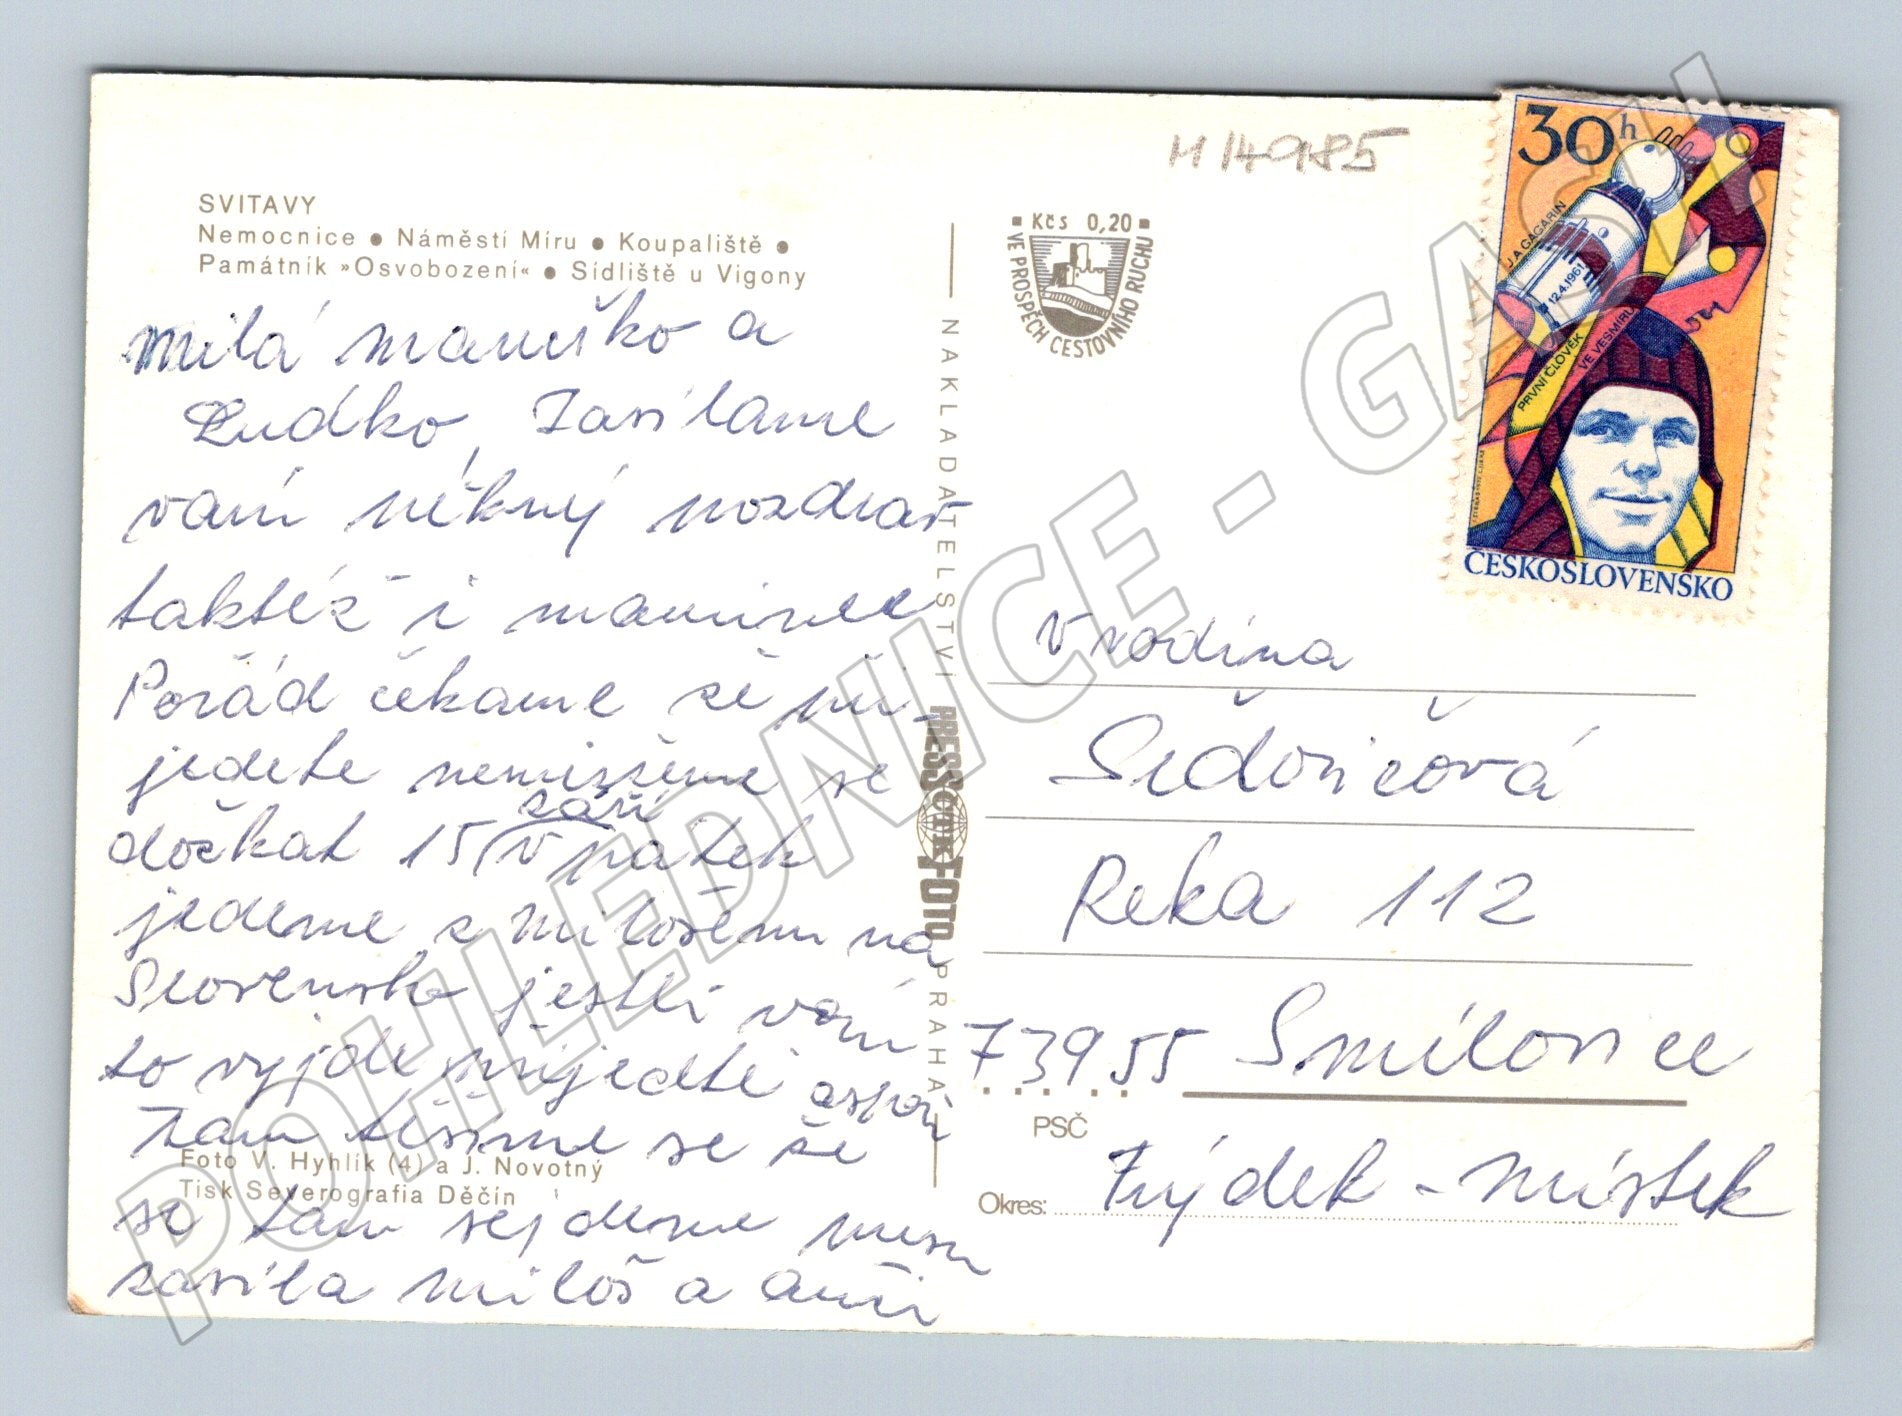 M 14985
SVITAVY
Nemocnice • Náměstí Míru • Koupaliště •
Památník »Osvobození« • Sídliště u Vigony
milá mamško a
Ludko, Zasílame
vám pěkný pozdrav
taktéž i mamince
Pořád čekame že při-
jedete nemúžeme se
dočkat 15 září v pátek
jedeme z milošem na
Slovensko jestli vám
to vyjde přijedte aspoň
tam těšíme se že
se tam sejdeme
zasíla miloš a
Foto V. Hyhlík (4) a J. Novotný
Tisk Severografia Děčín
NAKLADATELSTVÍ
PRESSFOTO
ČTK
PRAHA
Kčs 0,20
VE PROSPĚCH CESTOVNÍHO RUCHU
30h
J. A. GAGARIN
12.4.1961
PRVNÍ ČLOVĚK
VE VESMÍRU
ČESKOSLOVENSKO
V rodina
Reka 112
739 55 Smilovice
PSČ
Okres: Frýdek-Místek
POHLEDNICE - GASH